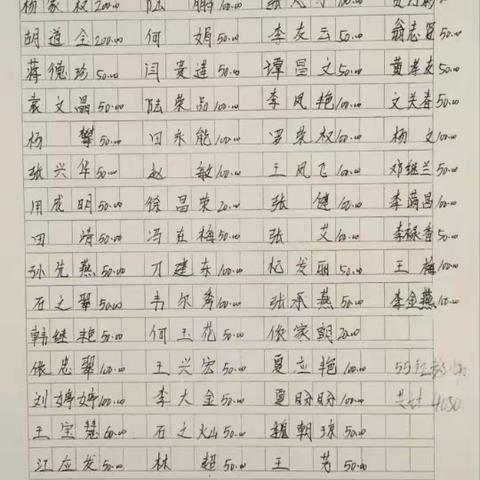 杨家权200.00 陆 鹏100.00
胡道全200.00 何 娟50.00 李友云50.00 翁志贤50.00
蒋德珍50.00 闫贵莲50.00 谭昌文50.00 黄孝友50.00
袁文昌50.00 陆荣品100.00 李凤艳100.00 文关春50.00
杨 攀50.00 田永能100.00 罗荣权100.00 杨 文100.00
张兴华50.00 赵 敏100.00 王凤飞100.00 邓继兰50.00
周成明50.00 徐昌荣20.00 张 健100.00 李满昌100.00
田 涛50.00 冯在梅50.00 张 艾100.00 李禄香50.00
孙先燕50.00 才建东100.00 杨发丽50.00 王 梅100.00
石之翠50.00 韦尔秀100.00 张承燕50.00 李金燕100.00
韩继艳50.00 何玉花50.00 侬家朝20.00
张忠翠100.00 王兴宏50.00 夏应艳100.00
刘婷婷100.00 李大金50.00 夏盼盼100.00 共计4030
王宝慧60.00 石之火山50.00 魏朝琼50.00
江应发50.00 林 超50.00 王 芳50.00